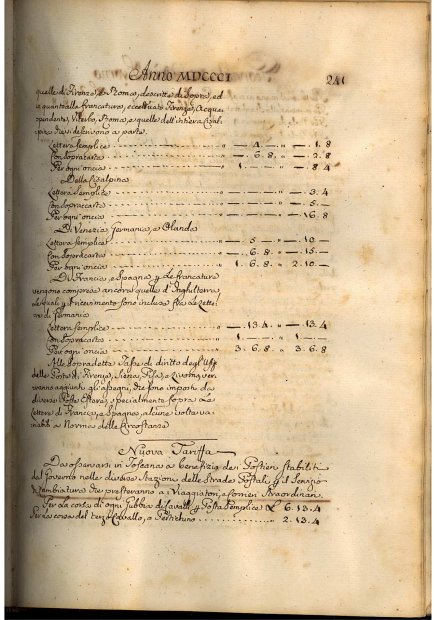 Anno MDCCCI 241
quelle di Firenze, e Roma, descritte di sopra, ed
a quanto alla francatura, eccettuato Firenze, Acqua
pendente, Viterbo, Roma, e quelle dell'intiera
si descrivono a parte.
Lettera Semplice — 4. — 1. 8
Con sopracarta — 6. 8. — 2. 8
Per ogni oncia 1. — 8. 4
Della Cisalpina
Lettera Semplice — 3. 4
Con sopraccarta — 5. —
Per ogni oncia — 16. 8
Di Venezia, Germania, e Olanda
Lettera semplice — 5. — 10. —
Con sopraccarta — 6. 8. — 15. —
Per ogni oncia 1. 6. 8. 2. 10. —
Di Francia, e Spagna, e le francature
vengono comprese ancora quelle d'Inghilterra,
le quali ricevimento sono incluse fra le Lettere
di Germania
Lettera semplice — 13. 4. — 13. 4
Con sopracarta 1. — 1. —
Per ogni oncia 3. 6. 8. 3. 6. 8
Alle sopradette Tasse di diritto degl'Uffizi
delle Poste di Firenze, Siena, Pisa, e Livorno, ver-
ranno aggiunti gli aspegni, che sono imposti da
diverse Poste Estere, specialmente sopra le
Lettere di Francia, e Spagna, alcune volte va-
riabili a Norma delle Circostanze
Nuova Tariffa
Da osservarsi in Toscana a benefizio dei Postieri stabiliti
dal Governo nelle diverse Stazioni delle Strade Postali, il Servizio
che presteranno a Viaggiatori, e Corrieri Straordinari.
Per la corsa di ogni Cavalli Posta Semplice 6. 13. 4
Per la corsa del terzo Cavallo, o Pertichino 2. 13. 4